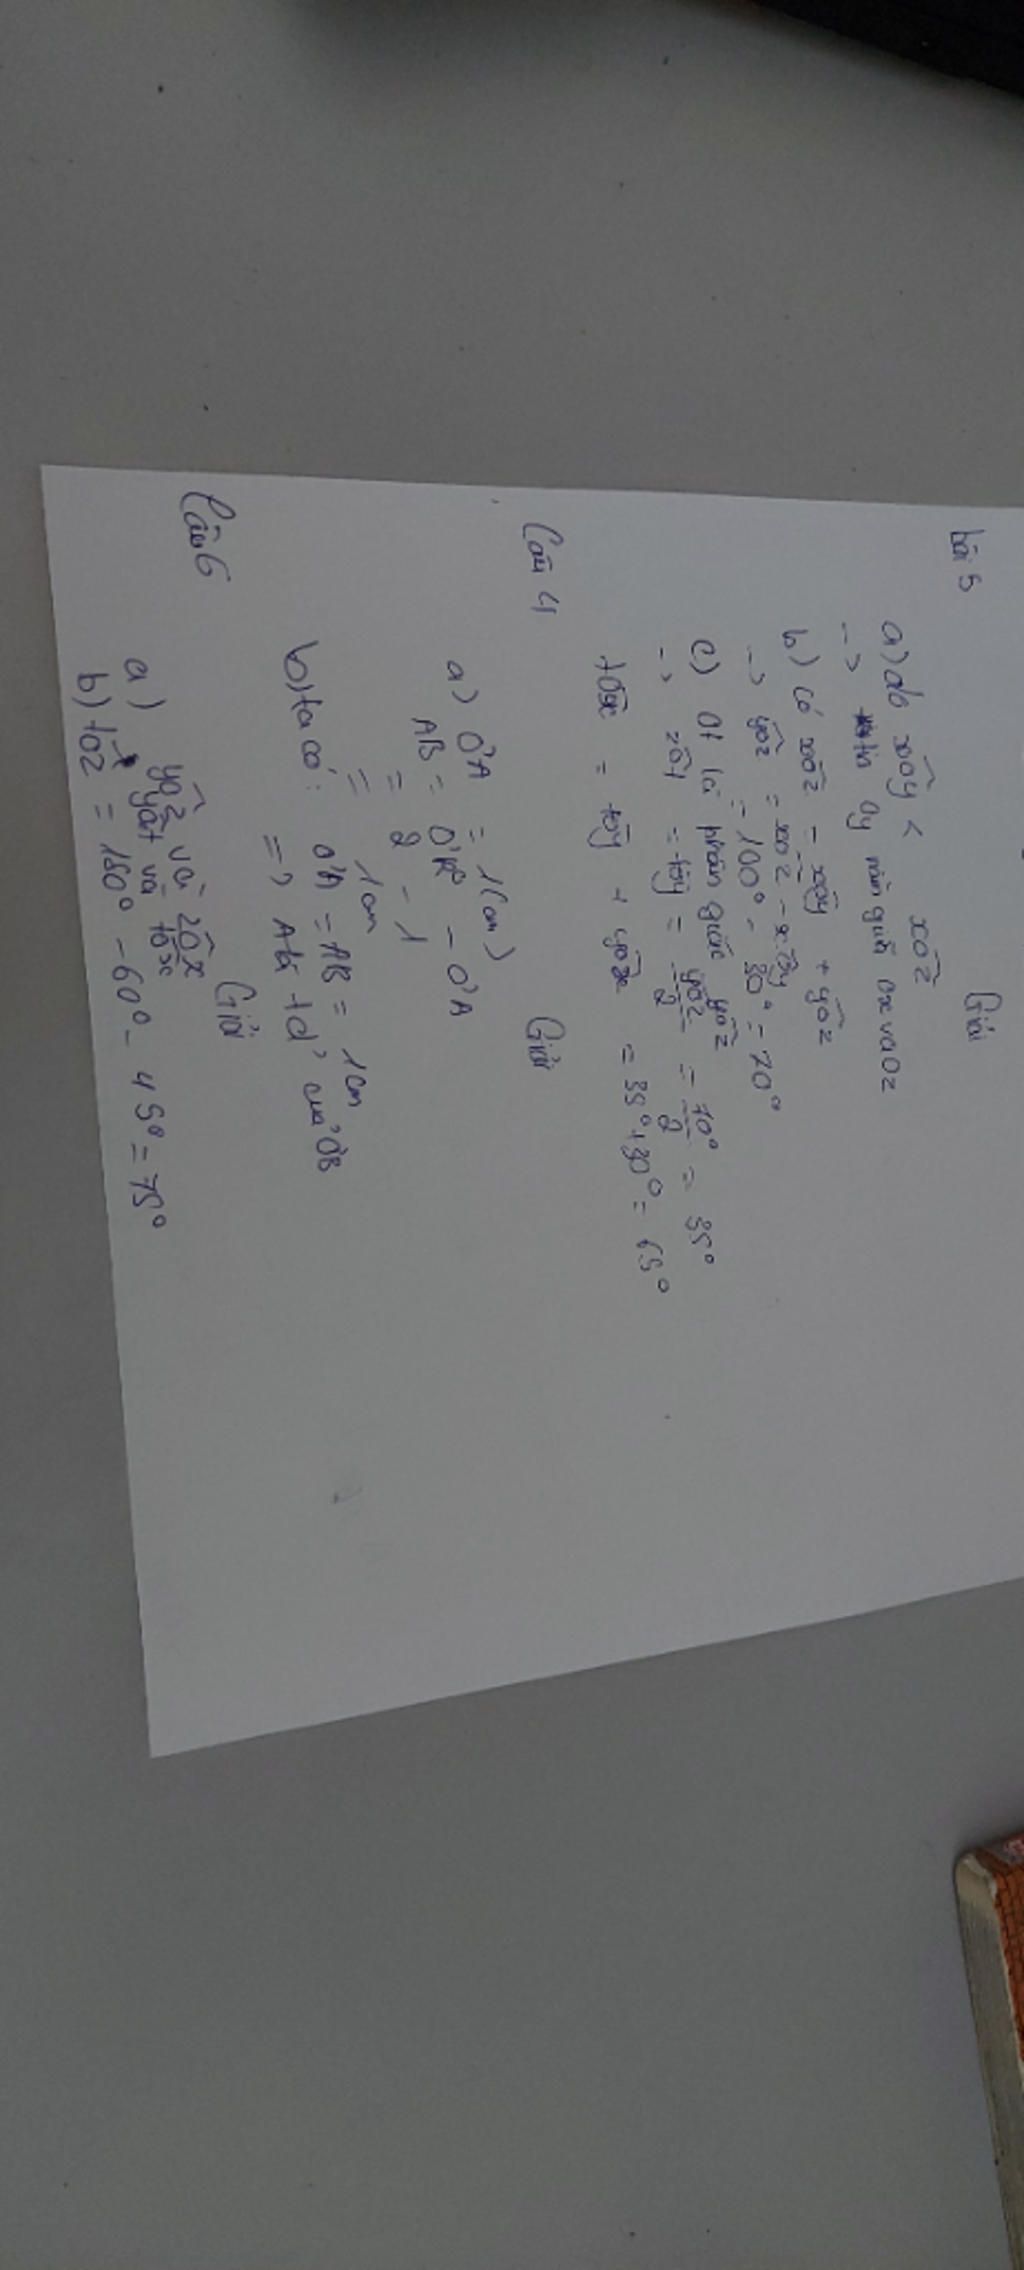 bài 5
Giải
a) do xÔy < xÔz
-> tia Oy nằm giữa Ox và Oz
b) có xÔz = xÔy + yÔz
-> yÔz = xÔz - xÔy
= 100° - 30° = 70°
c) Ot là phân giác yÔz
-> zÔt = tÔy = yÔz/2 = 70°/2 = 35°
tÔx = tÔy + yÔx = 35° + 30° = 65°
Câu 4
Giải
a) OA = 1(cm)
AB = OB - OA
= 2 - 1
= 1cm
b) ta có: OA = AB = 1cm
=> A là td' của OB
Câu 6
Giải
a) yÔz và zÔx
yÔt và tÔx
b) tÔz = 180° - 60° - 45° = 75°